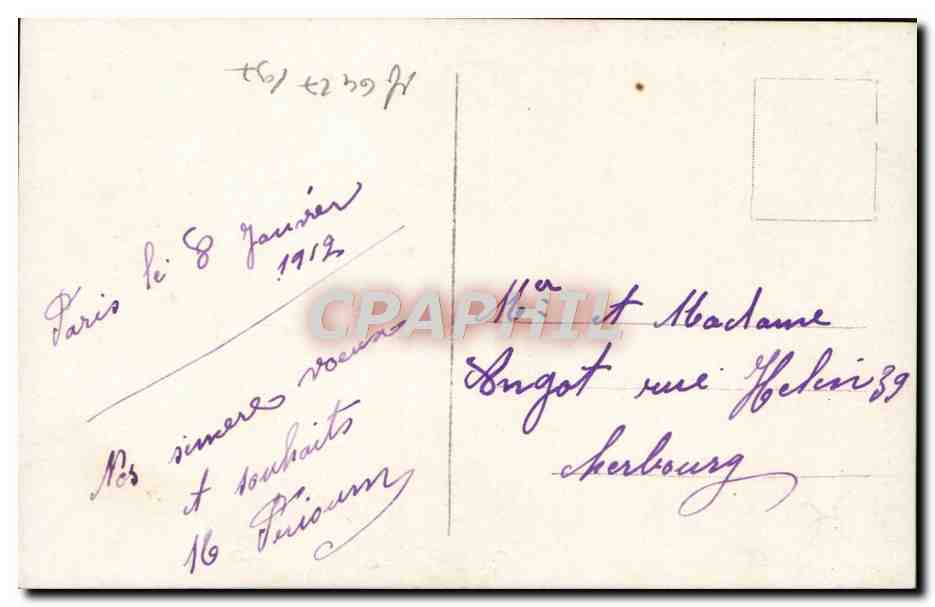 Paris le 8 Janvier
1912
Nos sincères voeux
et souhaits
CPAPHIL
Mr et Madame
Angot rue Helin 39
Cherbourg